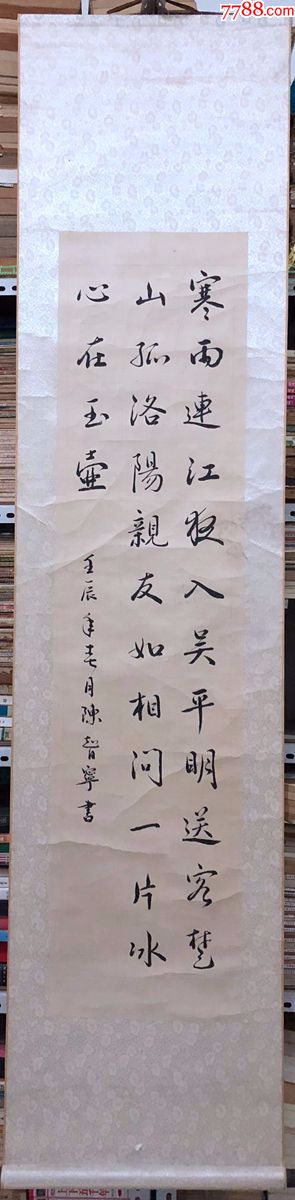 7788.com
寒雨連江夜入吴平明送客楚
山孤洛陽親友如相问一片冰
心在玉壶
壬辰年春月陳智寧書